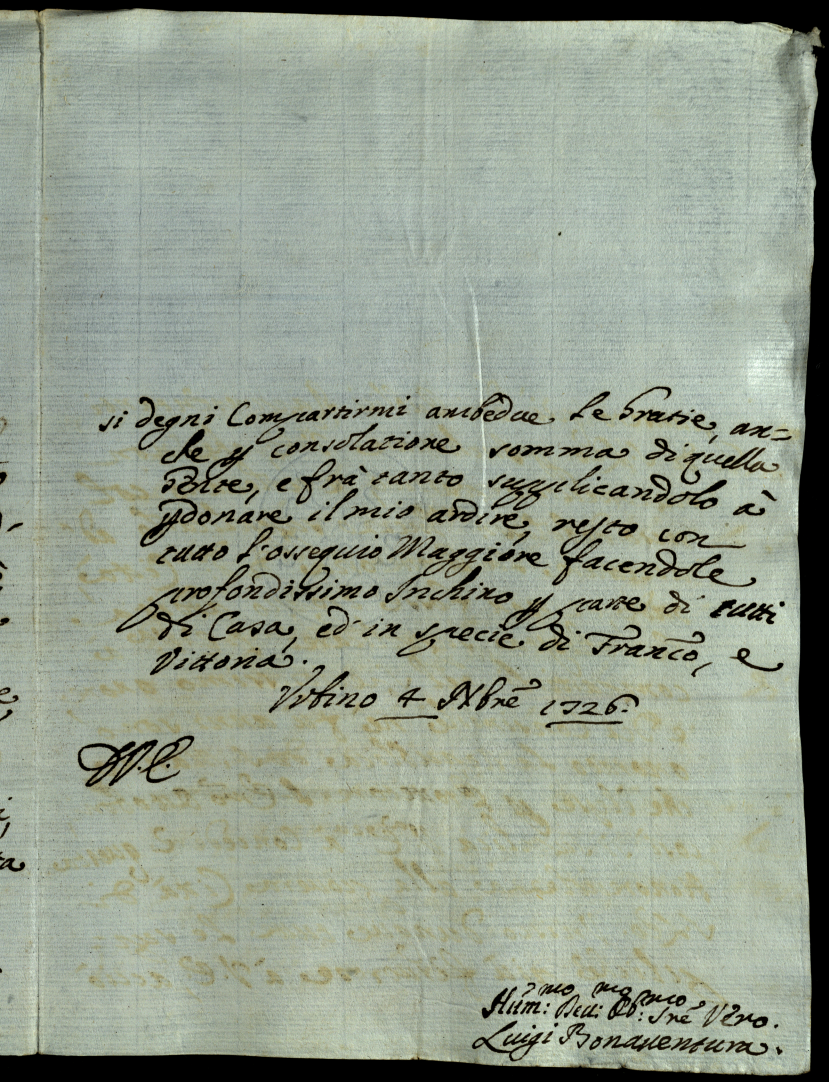 si degni Compartirmi ambedue le Gratie, an=
che p consolatione somma di quella
Gẽte, e frà tanto supplicandolo à
pdonare il mio ardire, resto con
tutto l'ossequio Maggiore facendole
profondissimo Inchino p parte di tutti
di Casa, ed in specie di Franco, e
Vittoria.
Urbino 4 Xbre 1726.
D V. E.
Hum:mo Dev:mo Ob:mo Sre Vero.
Luigi Bonaventura.